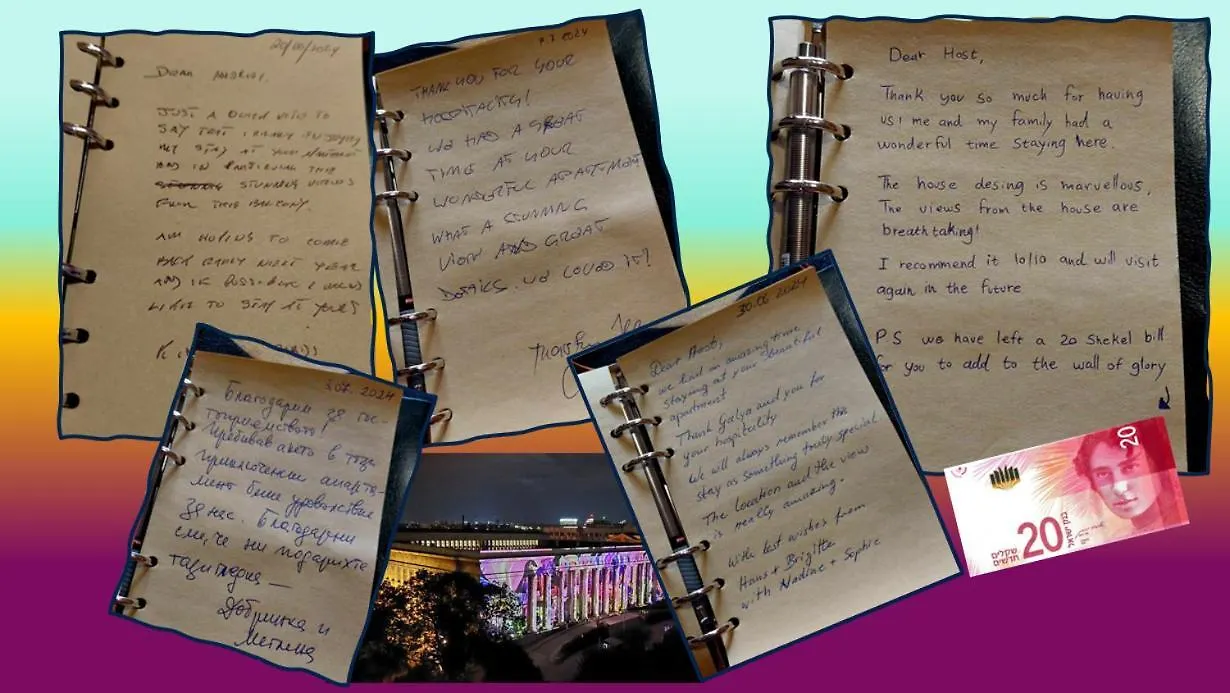 20/06/2024
JUST A QUICK NOTE TO
SAY THAT I REALLY ENJOYED
MY STAY AT YOUR APARTMENT
AND IN PARTICULAR THE
STUNNING VIEWS
FROM THE BALCONY.
AM HOPING TO COME
BACK EARLY NEXT YEAR
AND IF POSSIBLE I WOULD
LIKE TO STAY AT YOURS
7.7.2024
THANK YOU FOR YOUR
HOSPITALITY!
WE HAD A GREAT
TIME AT YOUR
WONDERFUL APARTMENT
WHAT A STUNNING
VIEW AND GREAT
WE LOVED IT!
Dear Host,
Thank you so much for having
us! me and my family had a
wonderful time staying here.
The house desing is marvellous.
The views from the house are
breathtaking!
I recommend it 10/10 and will visit
again in the future
P.S we have left a 20 shekel bill
for you to add to the wall of glory
3.07.2024
Благодарим за гос-
топриемството!
Пребиваването в този
апарта-
мент беше удоволствие
за нас. Благодарни
сме, че ни подарихте
тази гледка —
Добринка и
30.06.2024
Dear Host,
we had an amazing time
staying at your beautiful
apartment
Thank Galya and you for
your hospitality
We will always remember the
stay as something truly special
The location and the view
is really amazing.
With best wishes from
Hans + Brigitte
with Nadine + Sophie
20
20
שקלים
חדשים